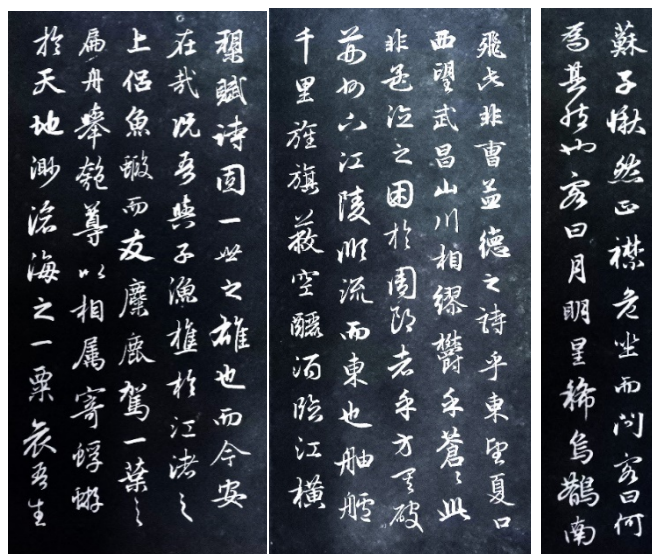 蘇子愀然正襟危坐而問客曰何
為其然也客曰月明星稀烏鵲南
飛此非曹孟德之詩乎東望夏口
西望武昌山川相繆鬱乎蒼々此
非孟德之困於周郎者乎方其破
荊州下江陵順流而東也舳艫
千里旌旗蔽空釃酒臨江橫
槊賦詩固一世之雄也而今安
在哉況吾與子漁樵於江渚之
上侶魚蝦而友麋鹿駕一葉之
扁舟舉匏尊以相属寄蜉蝣
於天地渺滄海之一粟哀吾生